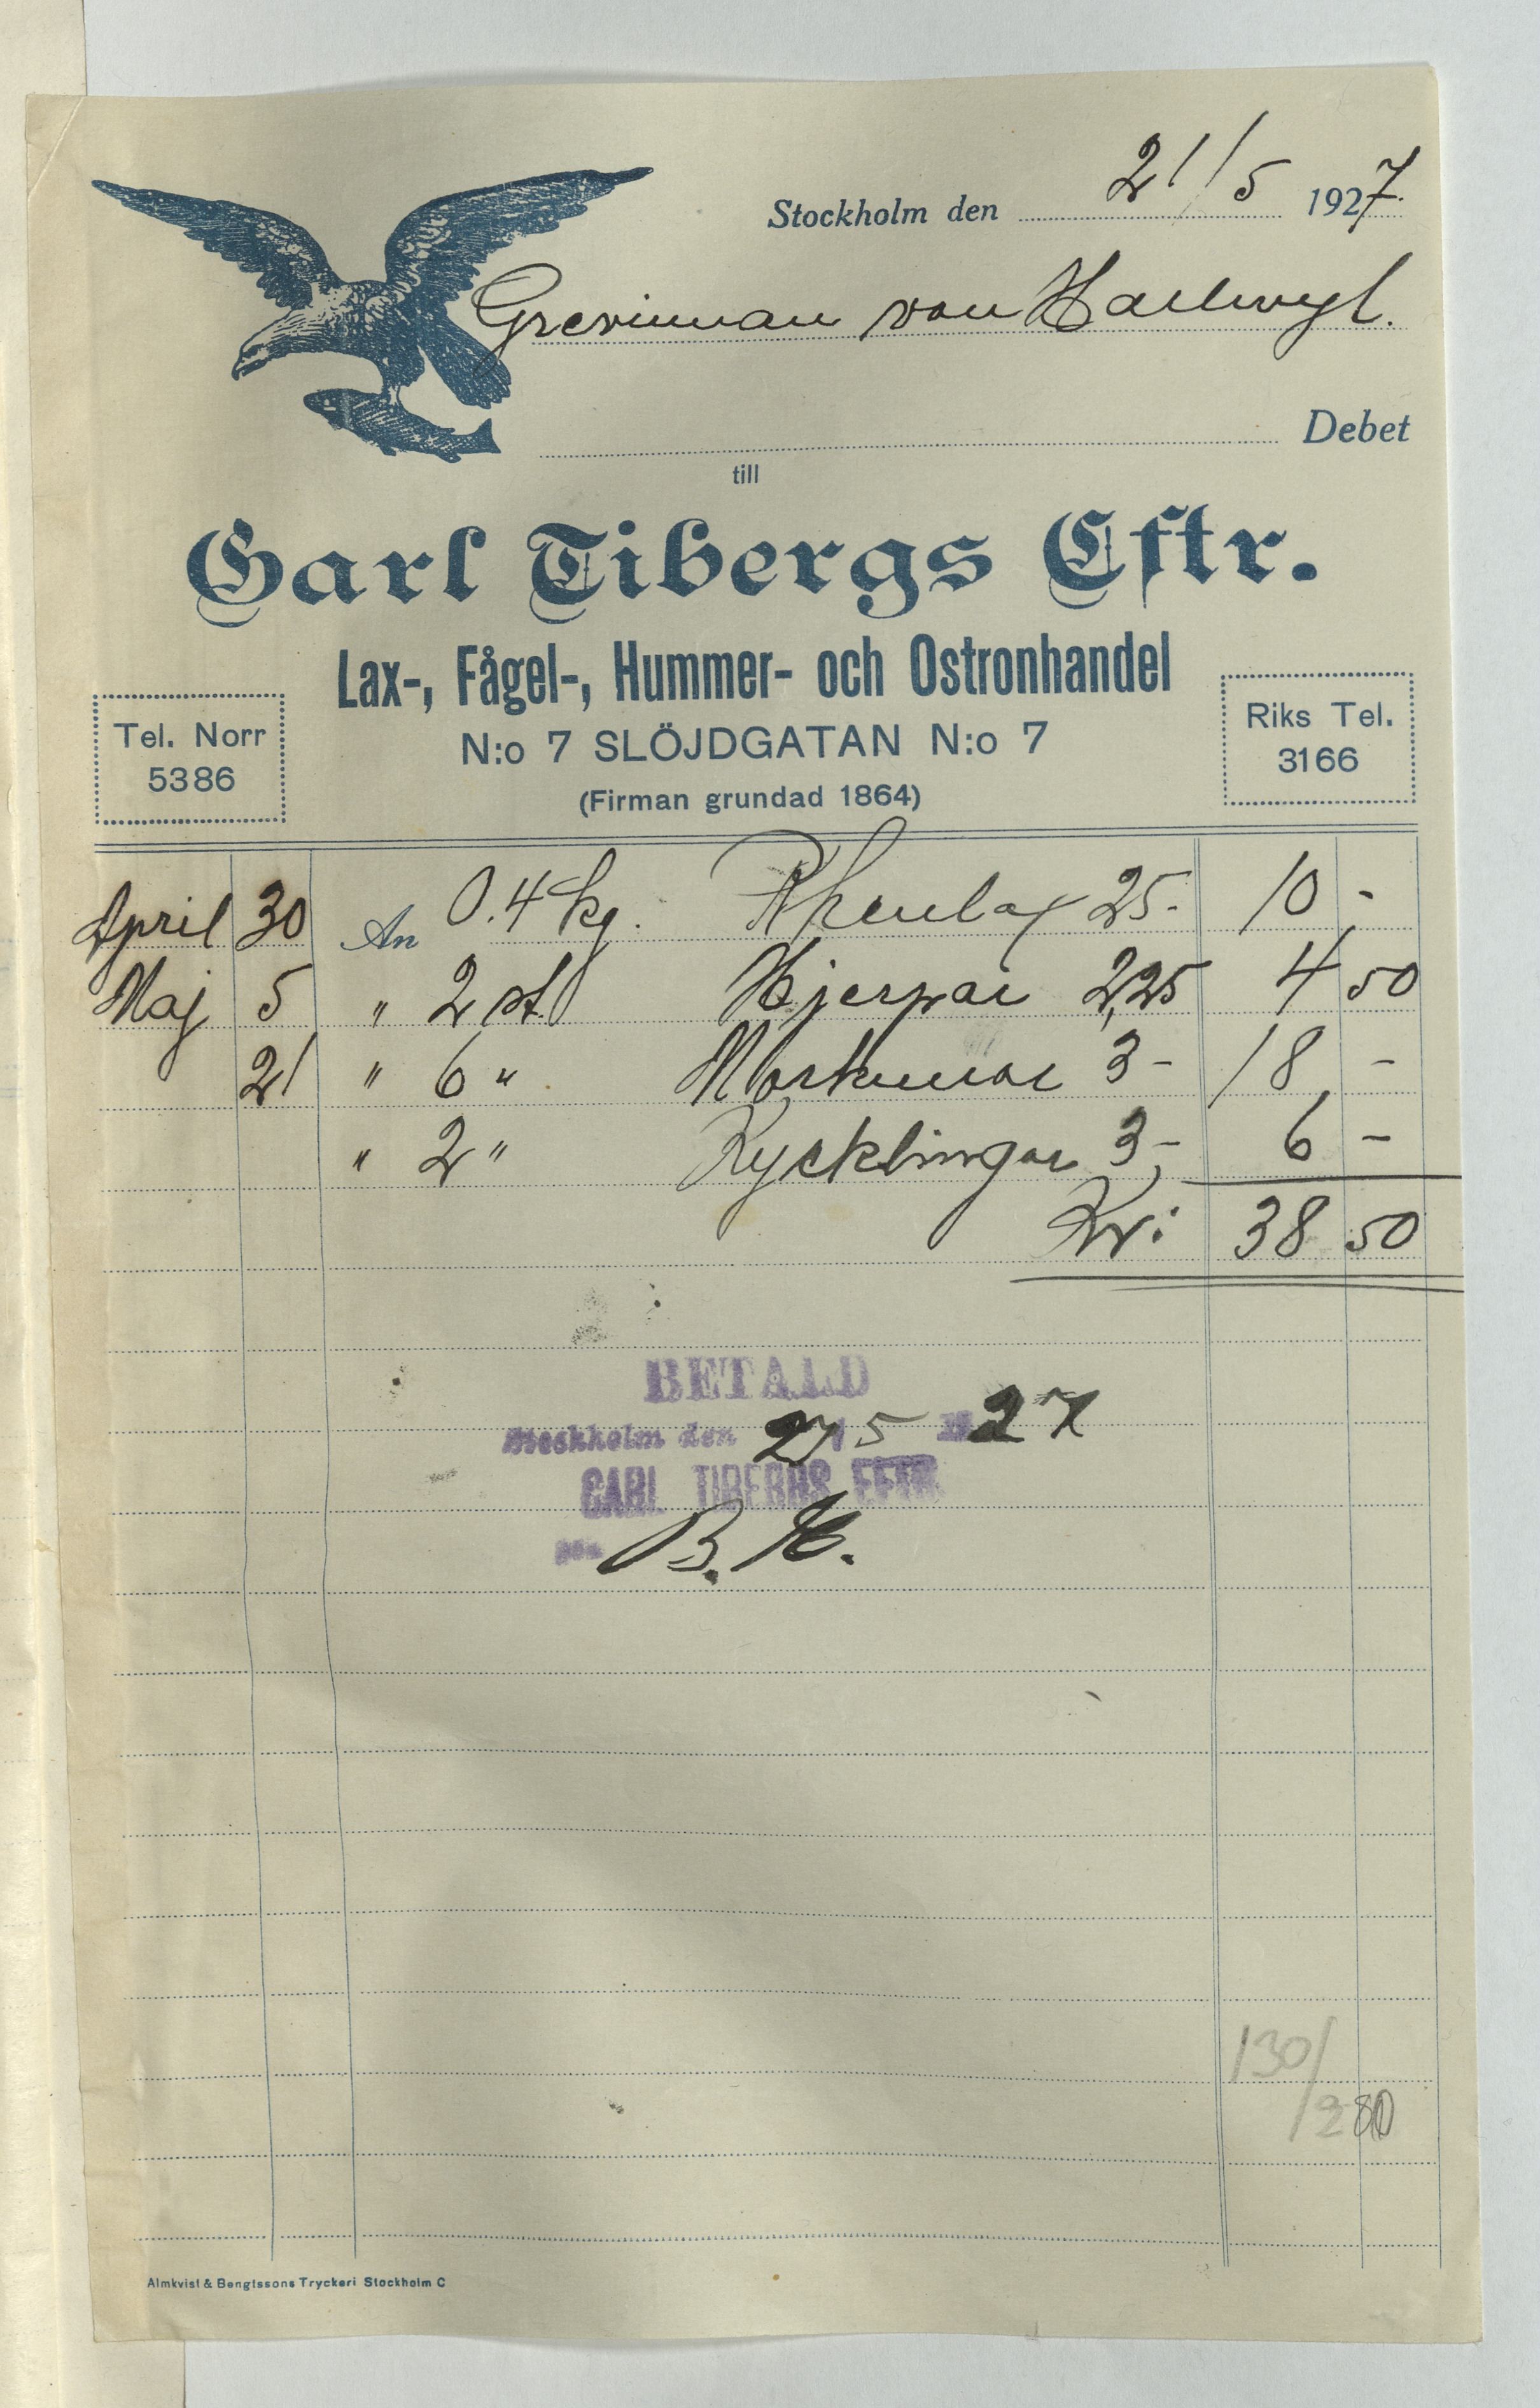 Stockholm den 21/5 1927.
Grevinnan von Hallwyl.
Debet
till
Carl Tibergs Eftr.
Lax-, Fågel-, Hummer- och Ostronhandel
Tel. Norr
5386
N:o 7 SLÖJDGATAN N:o 7
(Firman grundad 1864)
Riks Tel.
3166
April 30 An 0.4 kg. Rhenlax 25- 10 -
Maj 5 " 2 st. Hjerpar 2,25 4 50
21 " 6 " Morkullor 3- 18, -
" 2 " Kycklingar 3,- 6 -
Kr: 38 50
BETALD
Stockholm den 27/5 1927
CARL TIBERGS EFTR.
B. H.
130/
Almkvist & Bengtssons Tryckeri Stockholm C